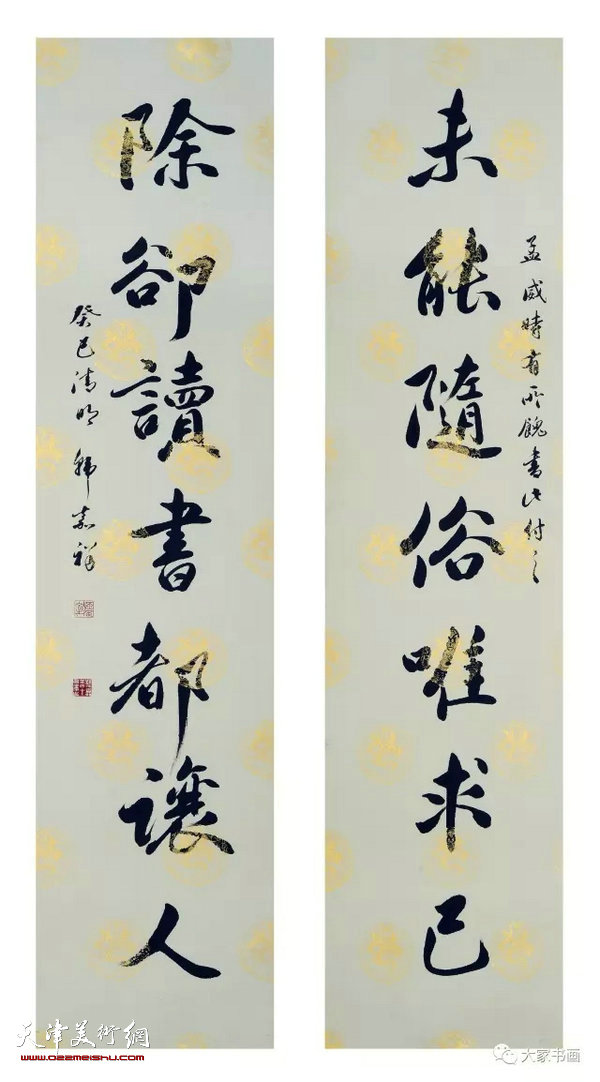 未能隨俗唯求己
孟威時有所餽書此付之
除卻讀書都讓人
癸巳清明 韓嘉祥
天津美術網
www.022meishu.com
大家书画